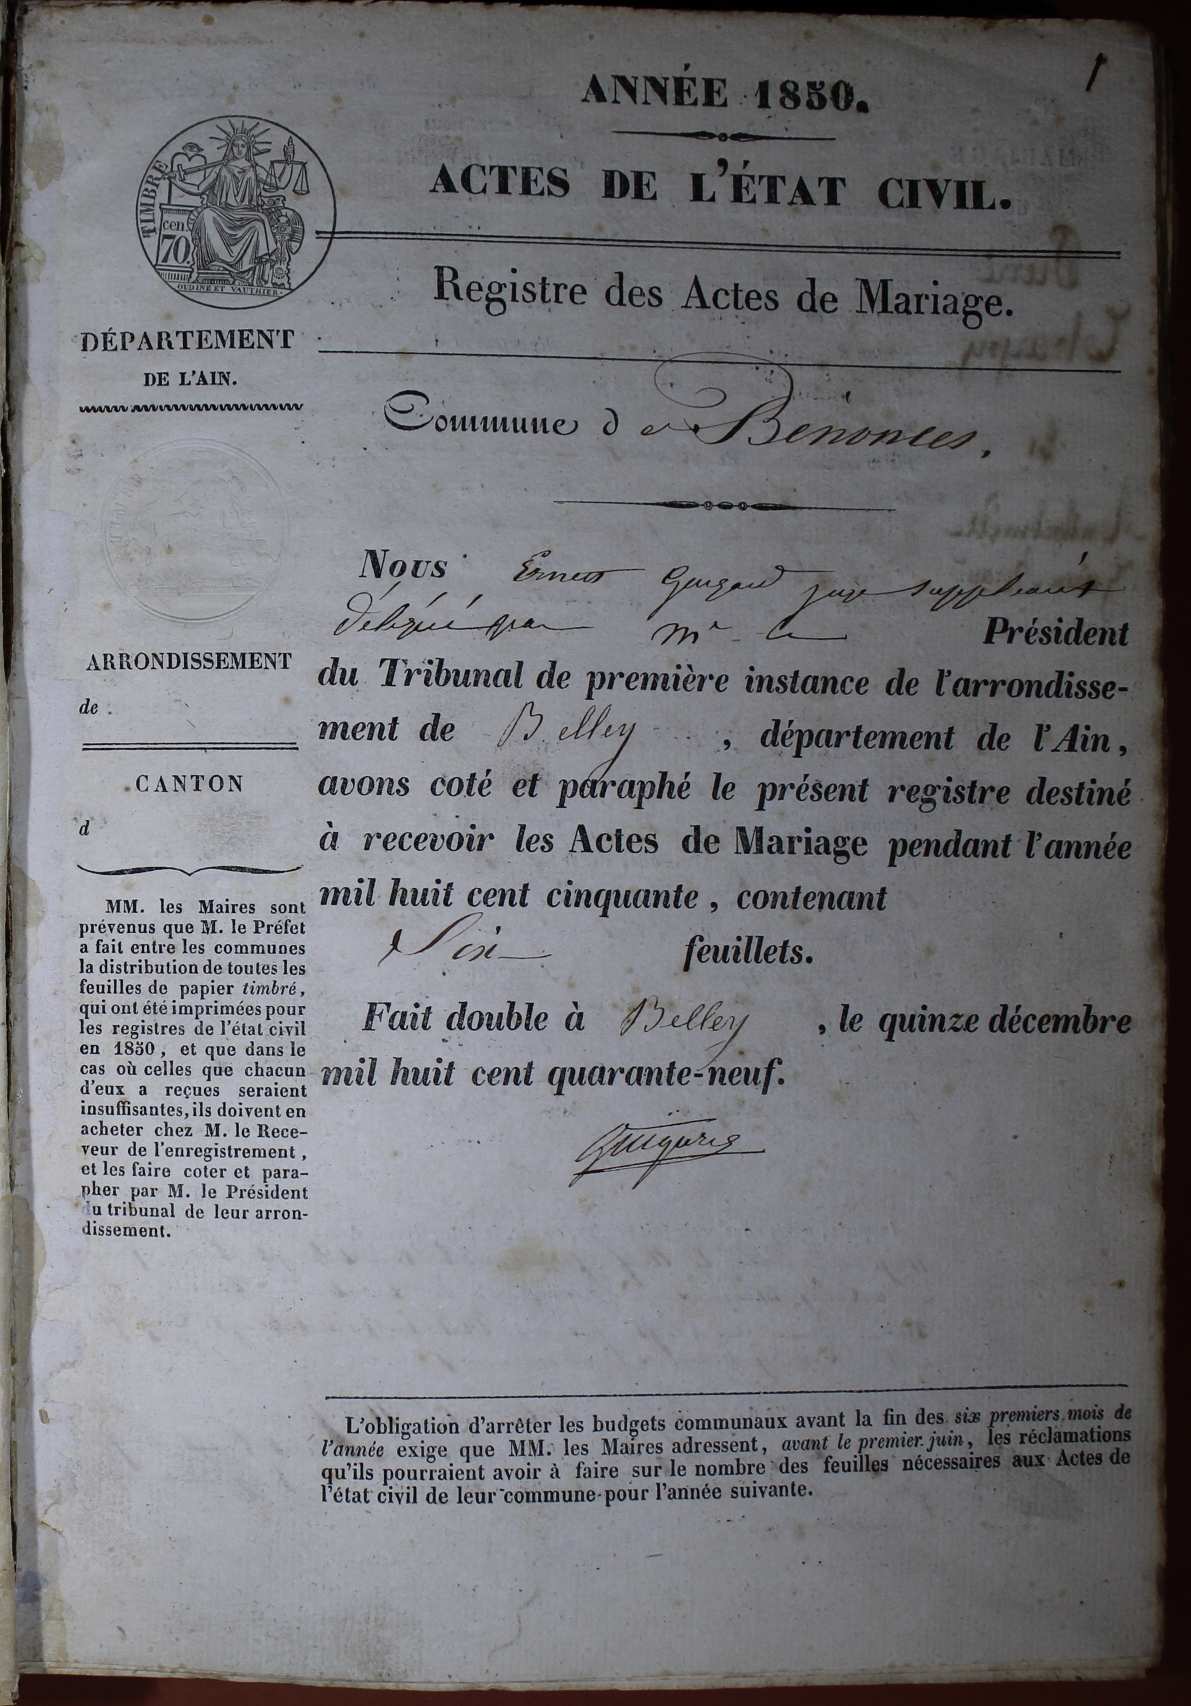 1
ANNÉE 1850.
ACTES DE L'ÉTAT CIVIL.
TIMBRE
cen
70
OUDINÉ ET VAUTHIER.
Registre des Actes de Mariage.
DÉPARTEMENT
DE L'AIN.
Commune de Bénonces,
Nous Ernest juge suppléant
délégué par Mr le Président
du Tribunal de première instance de l'arrondisse-
ment de Belley, département de l'Ain,
avons coté et paraphé le présent registre destiné
à recevoir les Actes de Mariage pendant l'année
mil huit cent cinquante, contenant
Six feuillets.
Fait double à Belley, le quinze décembre
mil huit cent quarante-neuf.
ARRONDISSEMENT
de
CANTON
d
MM. les Maires sont
prévenus que M. le Préfet
a fait entre les communes
la distribution de toutes les
feuilles de papier timbré,
qui ont été imprimées pour
les registres de l'état civil
en 1850, et que dans le
cas où celles que chacun
d'eux a reçues seraient
insuffisantes, ils doivent en
acheter chez M. le Rece-
veur de l'enregistrement,
et les faire coter et para-
pher par M. le Président
du tribunal de leur arron-
dissement.
L'obligation d'arrêter les budgets communaux avant la fin des six premiers mois de
l'année exige que MM. les Maires adressent, avant le premier juin, les réclamations
qu'ils pourraient avoir à faire sur le nombre des feuilles nécessaires aux Actes de
l'état civil de leur commune pour l'année suivante.